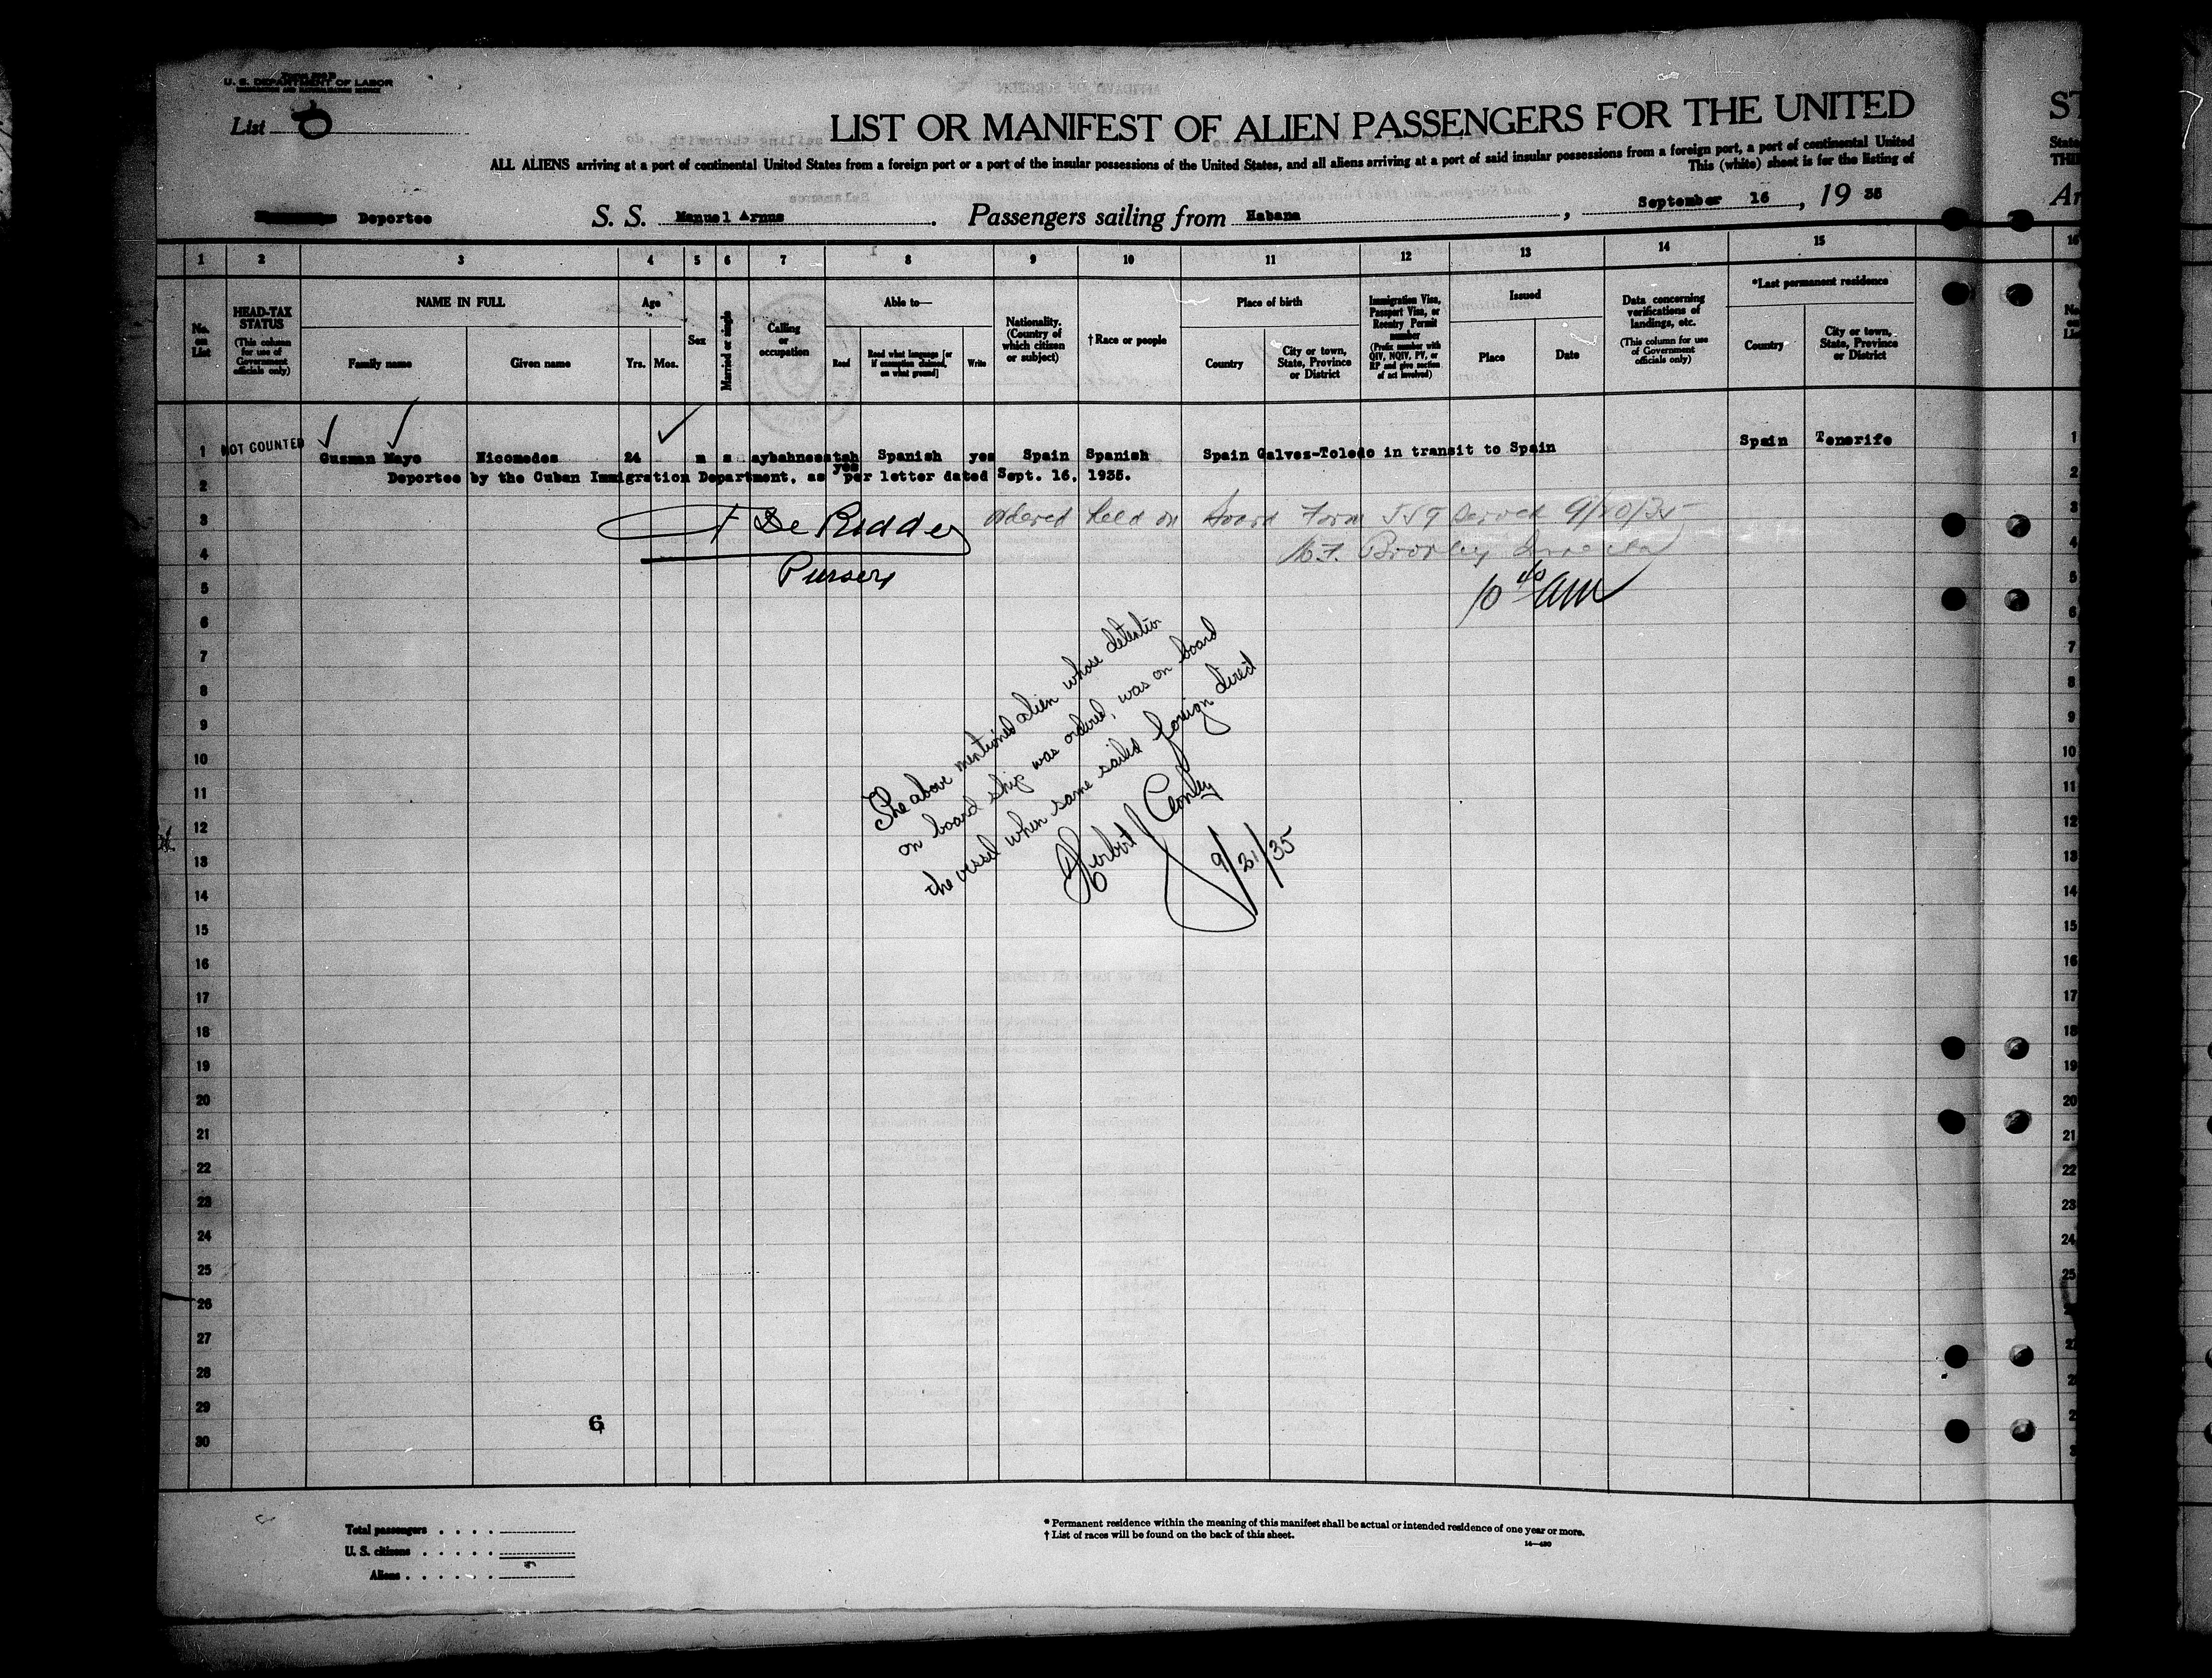 U. S. DEPARTMENT OF LABOR
List
LIST OR MANIFEST OF ALIEN PASSENGERS FOR THE UNITED ST
ALL ALIENS arriving at a port of continental United States from a foreign port or a port of the insular possessions of the United States, and all aliens arriving at a port of said insular possessions from a foreign port, a port of continental United State
This (white) sheet is for the listing of
Deportee S. S. Manuel Arnus. Passengers sailing from Habana, September 16, 19 35
1 2 3 4 5 6 7 8 9 10 11 12 13 14 15 16
No. on List
HEAD-TAX STATUS (This column for use of Government officials only)
NAME IN FULL
Family name
Given name
Age
Yrs. Mos.
Sex
Married or single
Calling or occupation
Able to—
Read
Read what language [or if exemption claimed, on what ground]
Write
Nationality. (Country of which citizen or subject)
†Race or people
Place of birth
Country
City or town, State, Province or District
Immigration Visa, Passport Visa, or Reentry Permit number
(Prefix number with QIV, NQIV, PV, or RP and give section of act involved)
Issued
Place
Date
Data concerning verifications of landings, etc.
(This column for use of Government officials only)
*Last permanent residence
Country
City or town, State, Province or District
1 NOT COUNTED Guzman Mayo Nicomedes 24 m s yes Spanish yes Spain Spanish Spain Galvez-Toledo in transit to Spain Spain Tenerife
2 Deportee by the Cuban Immigration Department, as per letter dated Sept. 16, 1935.
3 De Ridder ordered held on board Form 559 served 9/20/35
4
5 Purser 10 40 AM
6
7
8
9
10
11
12
13
14
15
16
17
18
19
20
21
22
23
24
25
26
27
28
29
30
The above mentioned alien whose detention
on board ship was ordered, was on board
the vessel when same sailed foreign direct
9/21/35
6
Total passengers
U. S. citizens
Aliens
* Permanent residence within the meaning of this manifest shall be actual or intended residence of one year or more.
† List of races will be found on the back of this sheet.